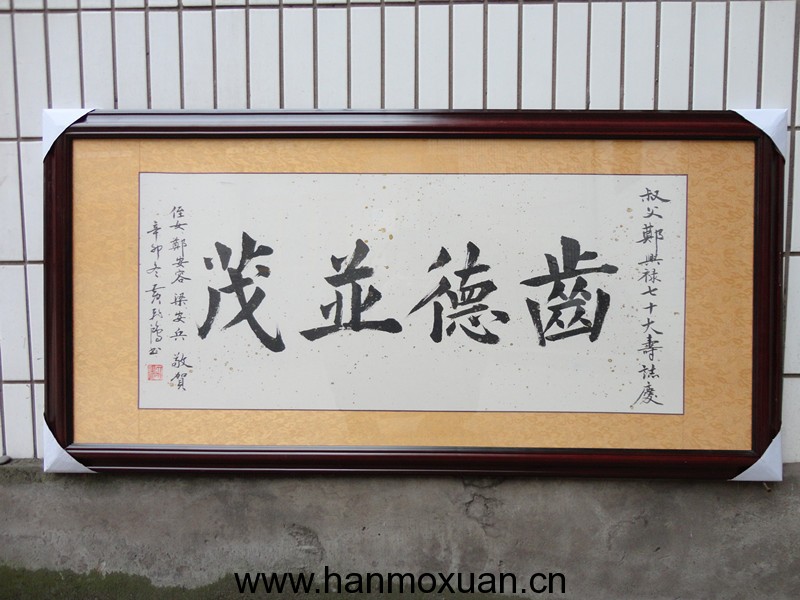 叔父鄭興祿七十大壽誌慶
齒德並茂
侄女鄭安容 梁安兵 敬賀
辛卯冬黄
書
www.hanmoxuan.cn